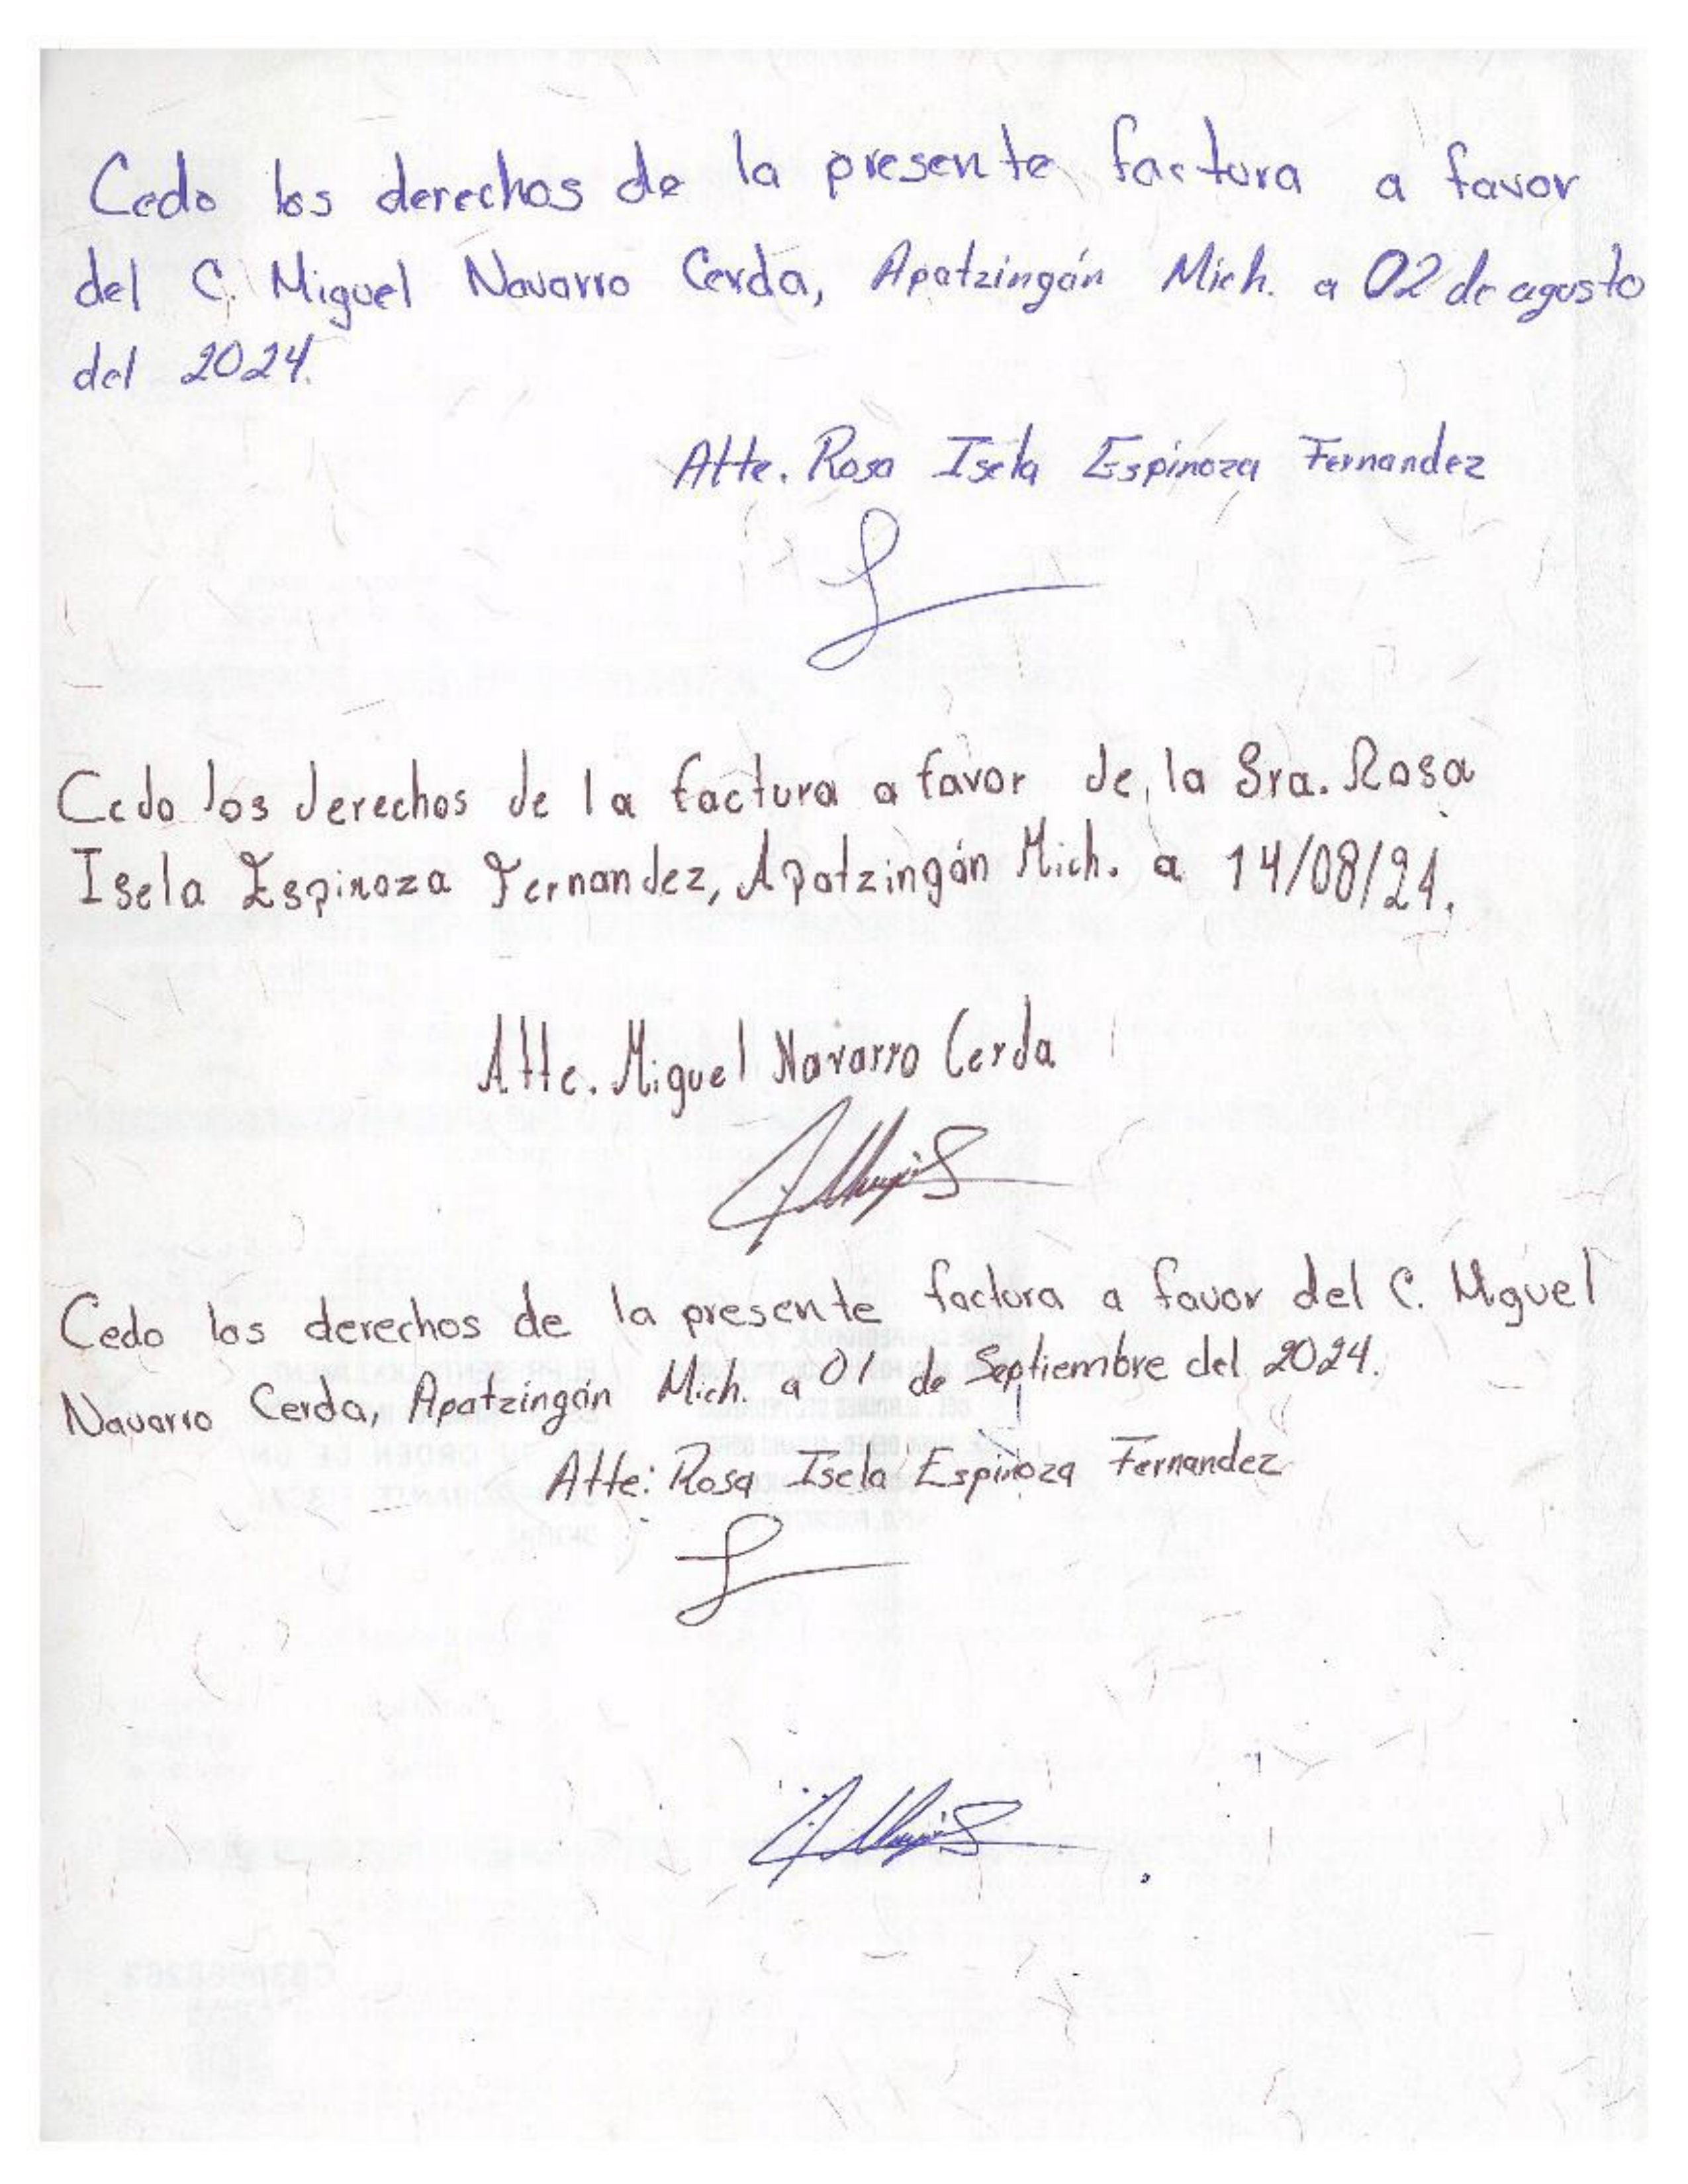 Cedo los derechos de la presente factura a favor
del C. Miguel Navarro Cerda, Apatzingán Mich. a 02 de agosto
del 2024.
Atte. Rosa Isela Espinoza Fernandez
Cedo los derechos de la factura a favor de la Sra. Rosa
Isela Espinoza Fernandez, Apatzingán Mich. a 14/08/24.
Atte. Miguel Navarro Cerda
Cedo los derechos de la presente factura a favor del C. Miguel
Navarro Cerda, Apatzingán Mich. a 01 de Septiembre del 2024.
Atte: Rosa Isela Espinoza Fernandez